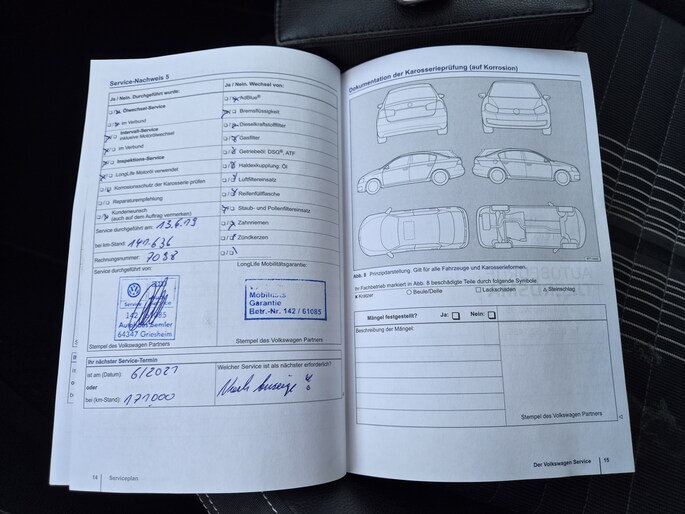 Service-Nachweis 5
Ja / Nein. Durchgeführt wurde:
Ölwechsel-Service
im Verbund
Intervall-Service
inklusive Motorölwechsel
im Verbund
Inspektions-Service
LongLife Motoröl verwendet
Korrosionsschutz der Karosserie prüfen
Reparaturempfehlung
Kundenwunsch
(auch auf dem Auftrag vermerken)
Service durchgeführt am: 13.6.19
bei km-Stand: 141.636
Rechnungsnummer: 7098
Service durchgeführt von:
Service
142 / 61085
64347 Griesheim
Stempel des Volkswagen Partners
Ja / Nein. Wechsel von:
AdBlue®
Bremsflüssigkeit
Dieselkraftstofffilter
Gasfilter
Getriebeöl: DSG®, ATF
Haldexkupplung: Öl
Luftfiltereinsatz
Reifenfüllflasche
Staub- und Pollenfiltereinsatz
Zahnriemen
Zündkerzen
LongLife Mobilitätsgarantie:
Garantie
Betr.-Nr. 142 / 61085
Stempel des Volkswagen Partners
Ihr nächster Service-Termin
ist am (Datum): 6/2021
oder
bei (km-Stand): 171.000
Welcher Service ist als nächster erforderlich?
Nach Anzeige
14 Serviceplan
Dokumentation der Karosserieprüfung (auf Korrosion)
Abb. 8 Prinzipdarstellung. Gilt für alle Fahrzeuge und Karosserieformen.
Ihr Fachbetrieb markiert in Abb. 8 beschädigte Teile durch folgende Symbole:
Kratzer Beule/Delle Lackschaden Steinschlag
Mängel festgestellt? Ja: Nein:
Beschreibung der Mängel:
Stempel des Volkswagen Partners
Der Volkswagen Service 15